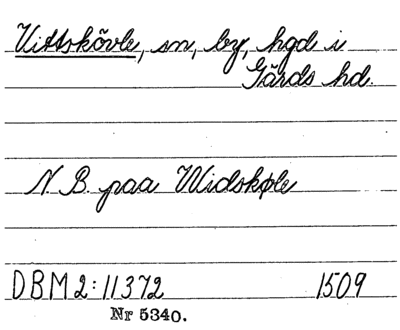 Vittskövle, sn, by, hgd i
Gärds hd.
N B. paa Widskøle
DBM 2:11372 1509
Nr 5340.